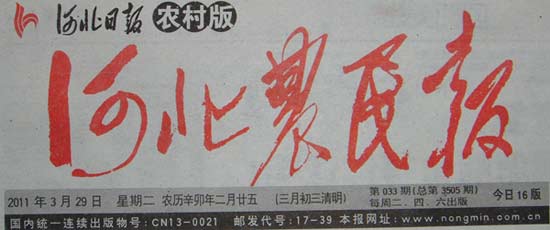 河北日报 农村版
河北農民報
2011年3月29日 星期二 农历辛卯年二月廿五 (三月初三清明) 第033期(总第3505期) 今日16版
每周二、四、六出版
国内统一连续出版物号:CN13-0021 邮发代号:17-39 本报网址:www.nongmin.com.cn